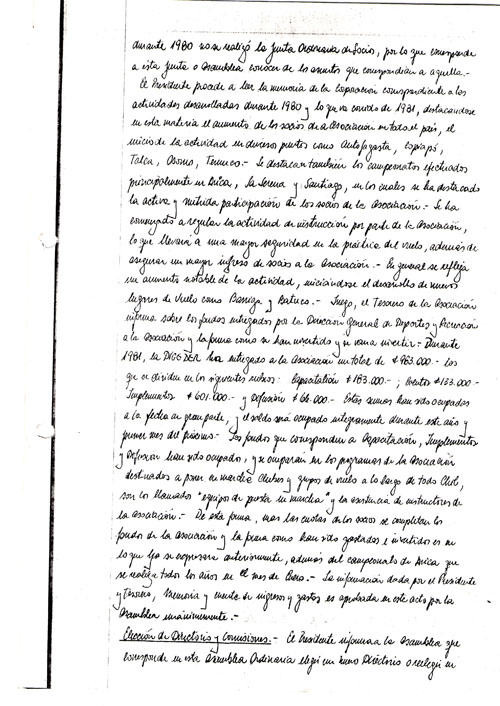 durante 1980 no se realizó la Junta Ordinaria de Socios, por lo que corresponde
a esta Junta o Asamblea conocer de los asuntos que correspondían a aquella.-
El Presidente procede a leer la memoria de la Corporación correspondiente a las
actividades desarrolladas durante 1980 y lo que va corrido de 1981, destacándose
en esta materia el aumento de los socios de la Asociación en todo el país, el
inicio de la actividad en diversos puntos como Antofagasta, Copiapó,
Talca, Osorno, Temuco.- Se destacan también los campeonatos efectuados
principalmente en Arica, La Serena y Santiago, en los cuales se ha destacado
la activa y nutrida participación de los socios de la Asociación.- Se ha
comenzado a regular la actividad de instrucción por parte de la Asociación,
lo que llevará a una mayor seguridad en la práctica del vuelo, además de
asegurar un mayor ingreso de socios a la Asociación.- En general se refleja
un aumento notable de la actividad, iniciándose el desarrollo de nuevos
lugares de vuelo como Barriga y Batuco.- Luego, el Tesorero de la Asociación
informa sobre los fondos entregados por la Dirección General de Deportes y Recreación
a la Asociación y la forma como se han invertido y se van a invertir.- Durante
1981, la DIGEDER ha entregado a la Asociación un total de $ 963.000.- los
que se dividen en los siguientes rubros: Capacitación $ 183.000.-; Eventos $ 133.000.-
Implementos $ 601.000.- y Difusión $ 66.000.- Estas sumas han sido ocupadas
a la fecha en gran parte, y el saldo será ocupado íntegramente durante este año y
primer mes del próximo.- Los fondos que corresponden a Capacitación, Implementos
y Difusión han sido ocupados, y se ocuparán en los programas de la Asociación
destinados a poner en marcha Clubes y grupos de vuelo a lo largo de todo Chile,
son los llamados "equipos de puesta en marcha" y la asistencia de instructores de
la asociación.- De esta forma, más las cuotas de los socios se completan los
fondos de la Asociación y la forma como han sido gastados e invertidos es en
lo que ya se expresara anteriormente, además del campeonato de Arica que
se realiza todos los años en el mes de Enero.- La información dada por el Presidente
y Tesorero, Memoria y cuenta de ingresos y gastos es aprobada en este acto por la
Asamblea unánimemente.-
Elección de Directorio y Comisiones.- El Presidente informa a la Asamblea que
corresponde en esta Asamblea Ordinaria elegir un nuevo Directorio o reelegir en